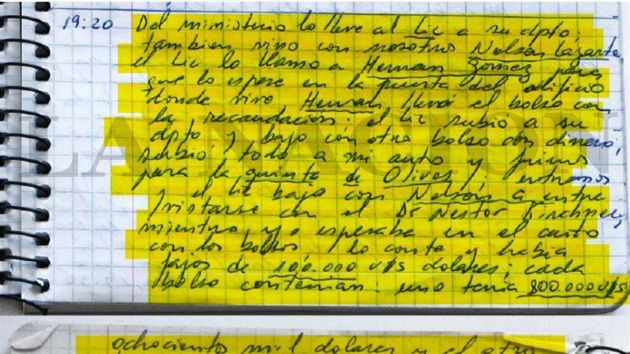 19:20 Del ministerio lo lleve al Lic a su dpto,
tambien vino con nosotros Nelson Lazarte
el Lic lo llamo a Hernan Gomez para
que lo espere en la puerta del edificio
donde vive Hernan, llevó el bolso con
la recaudación: el Lic subió a su
dpto. y bajo con otro bolso con dinero,
subió todo a mi auto y fuimos
para la quinta de Olivos, entramos
y el Lic bajo con Nelson a
con el Dr Nestor Kirchner,
mientras yo esperaba en el auto
con los bolsos, lo conte y habia
fajos de 100.000 u$s dolares, cada
bolso contenian: uno tenia 800.000 u$s
ochocientos mil dolares y el otro
LA NACION